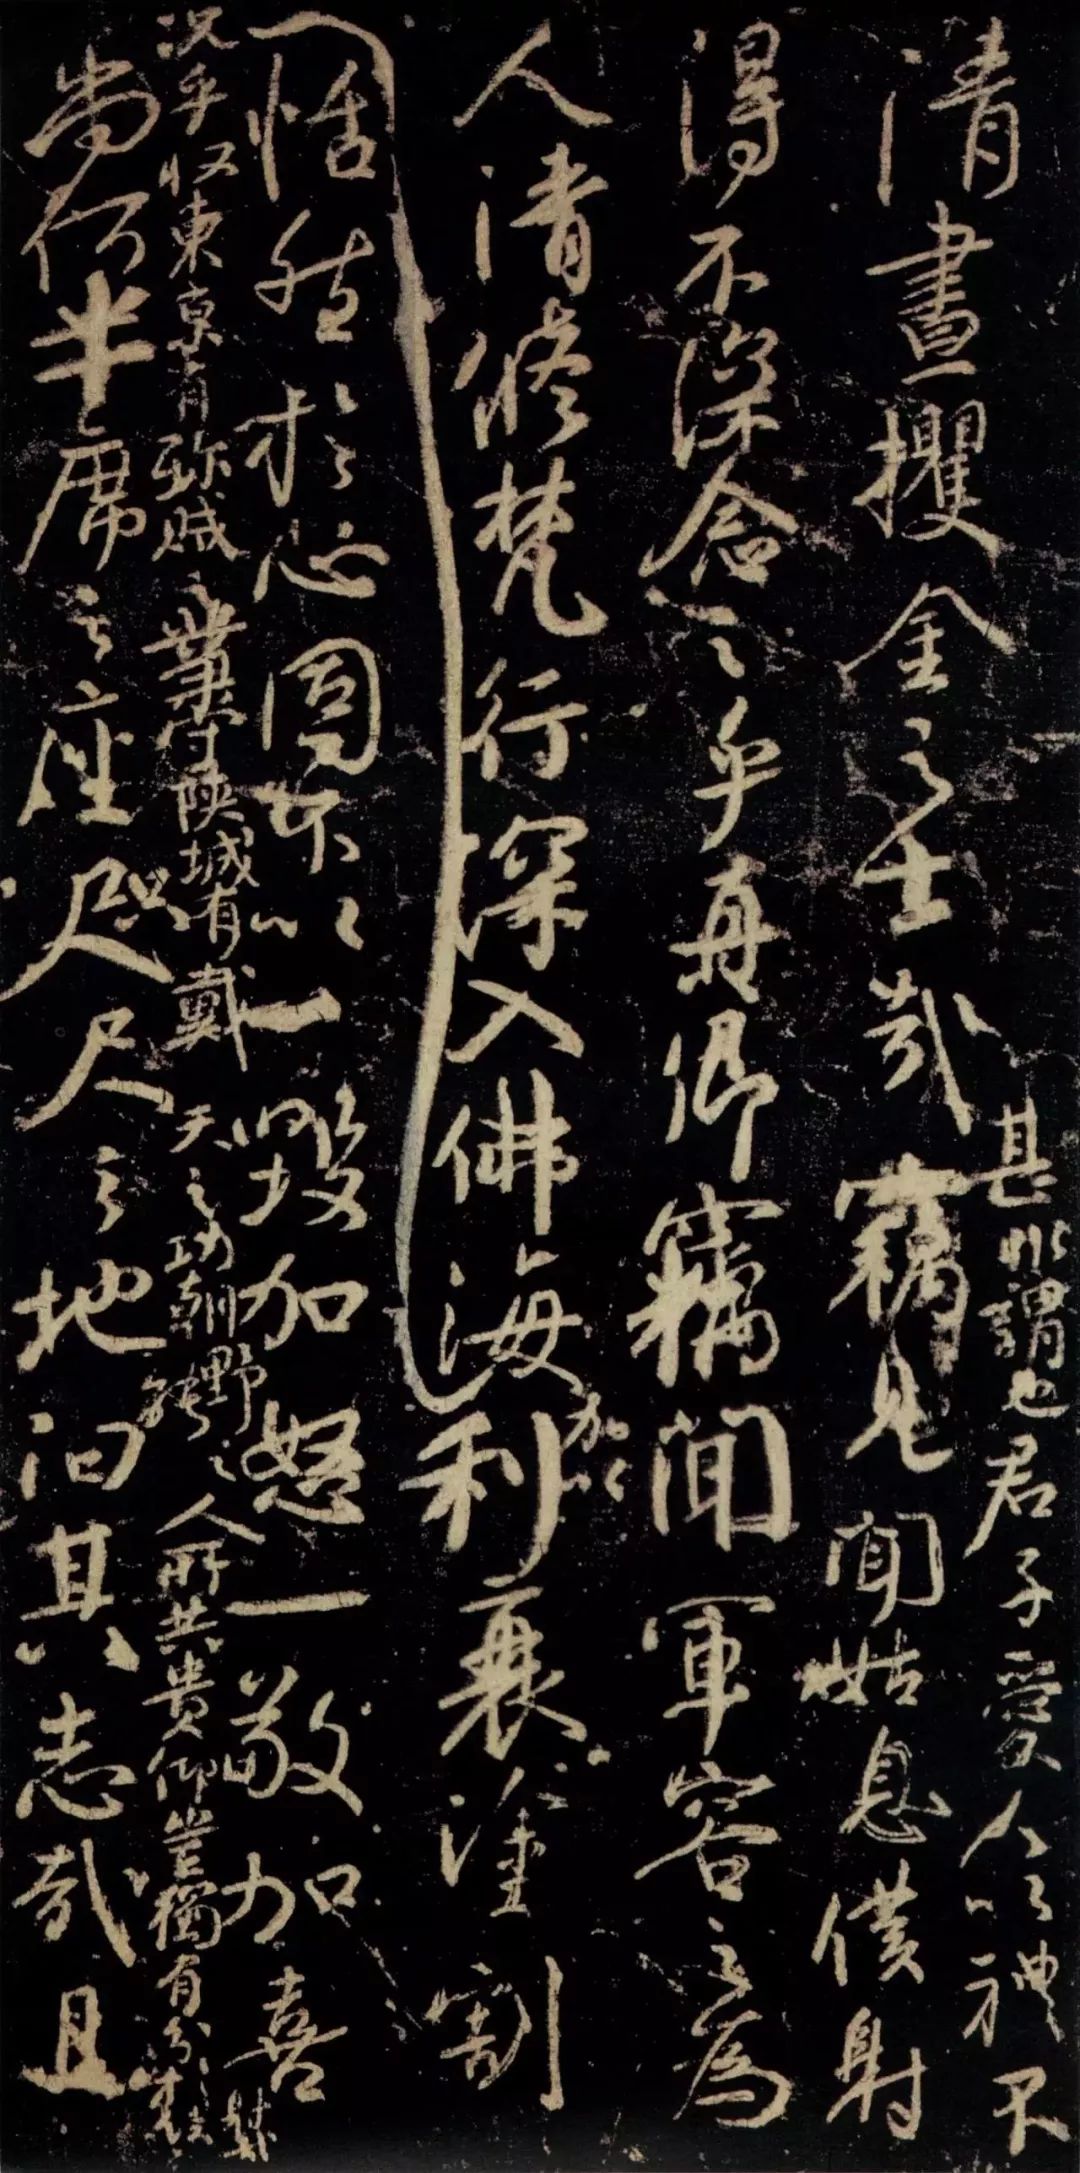 清晝攫金之士哉
甚非謂也君子愛人以禮不
竊見聞姑息僕射
得不深念之乎真卿竊聞軍容之為
人清修梵行深入佛海
加以
利衰塗割
恬然於心固不以一毀加怒一敬加喜
況乎收東京有殄賊之業守陝城有戴天之功朝野之人所共貴仰豈獨有分於僕射哉
尚何半席之座咫尺之地汩其志哉且